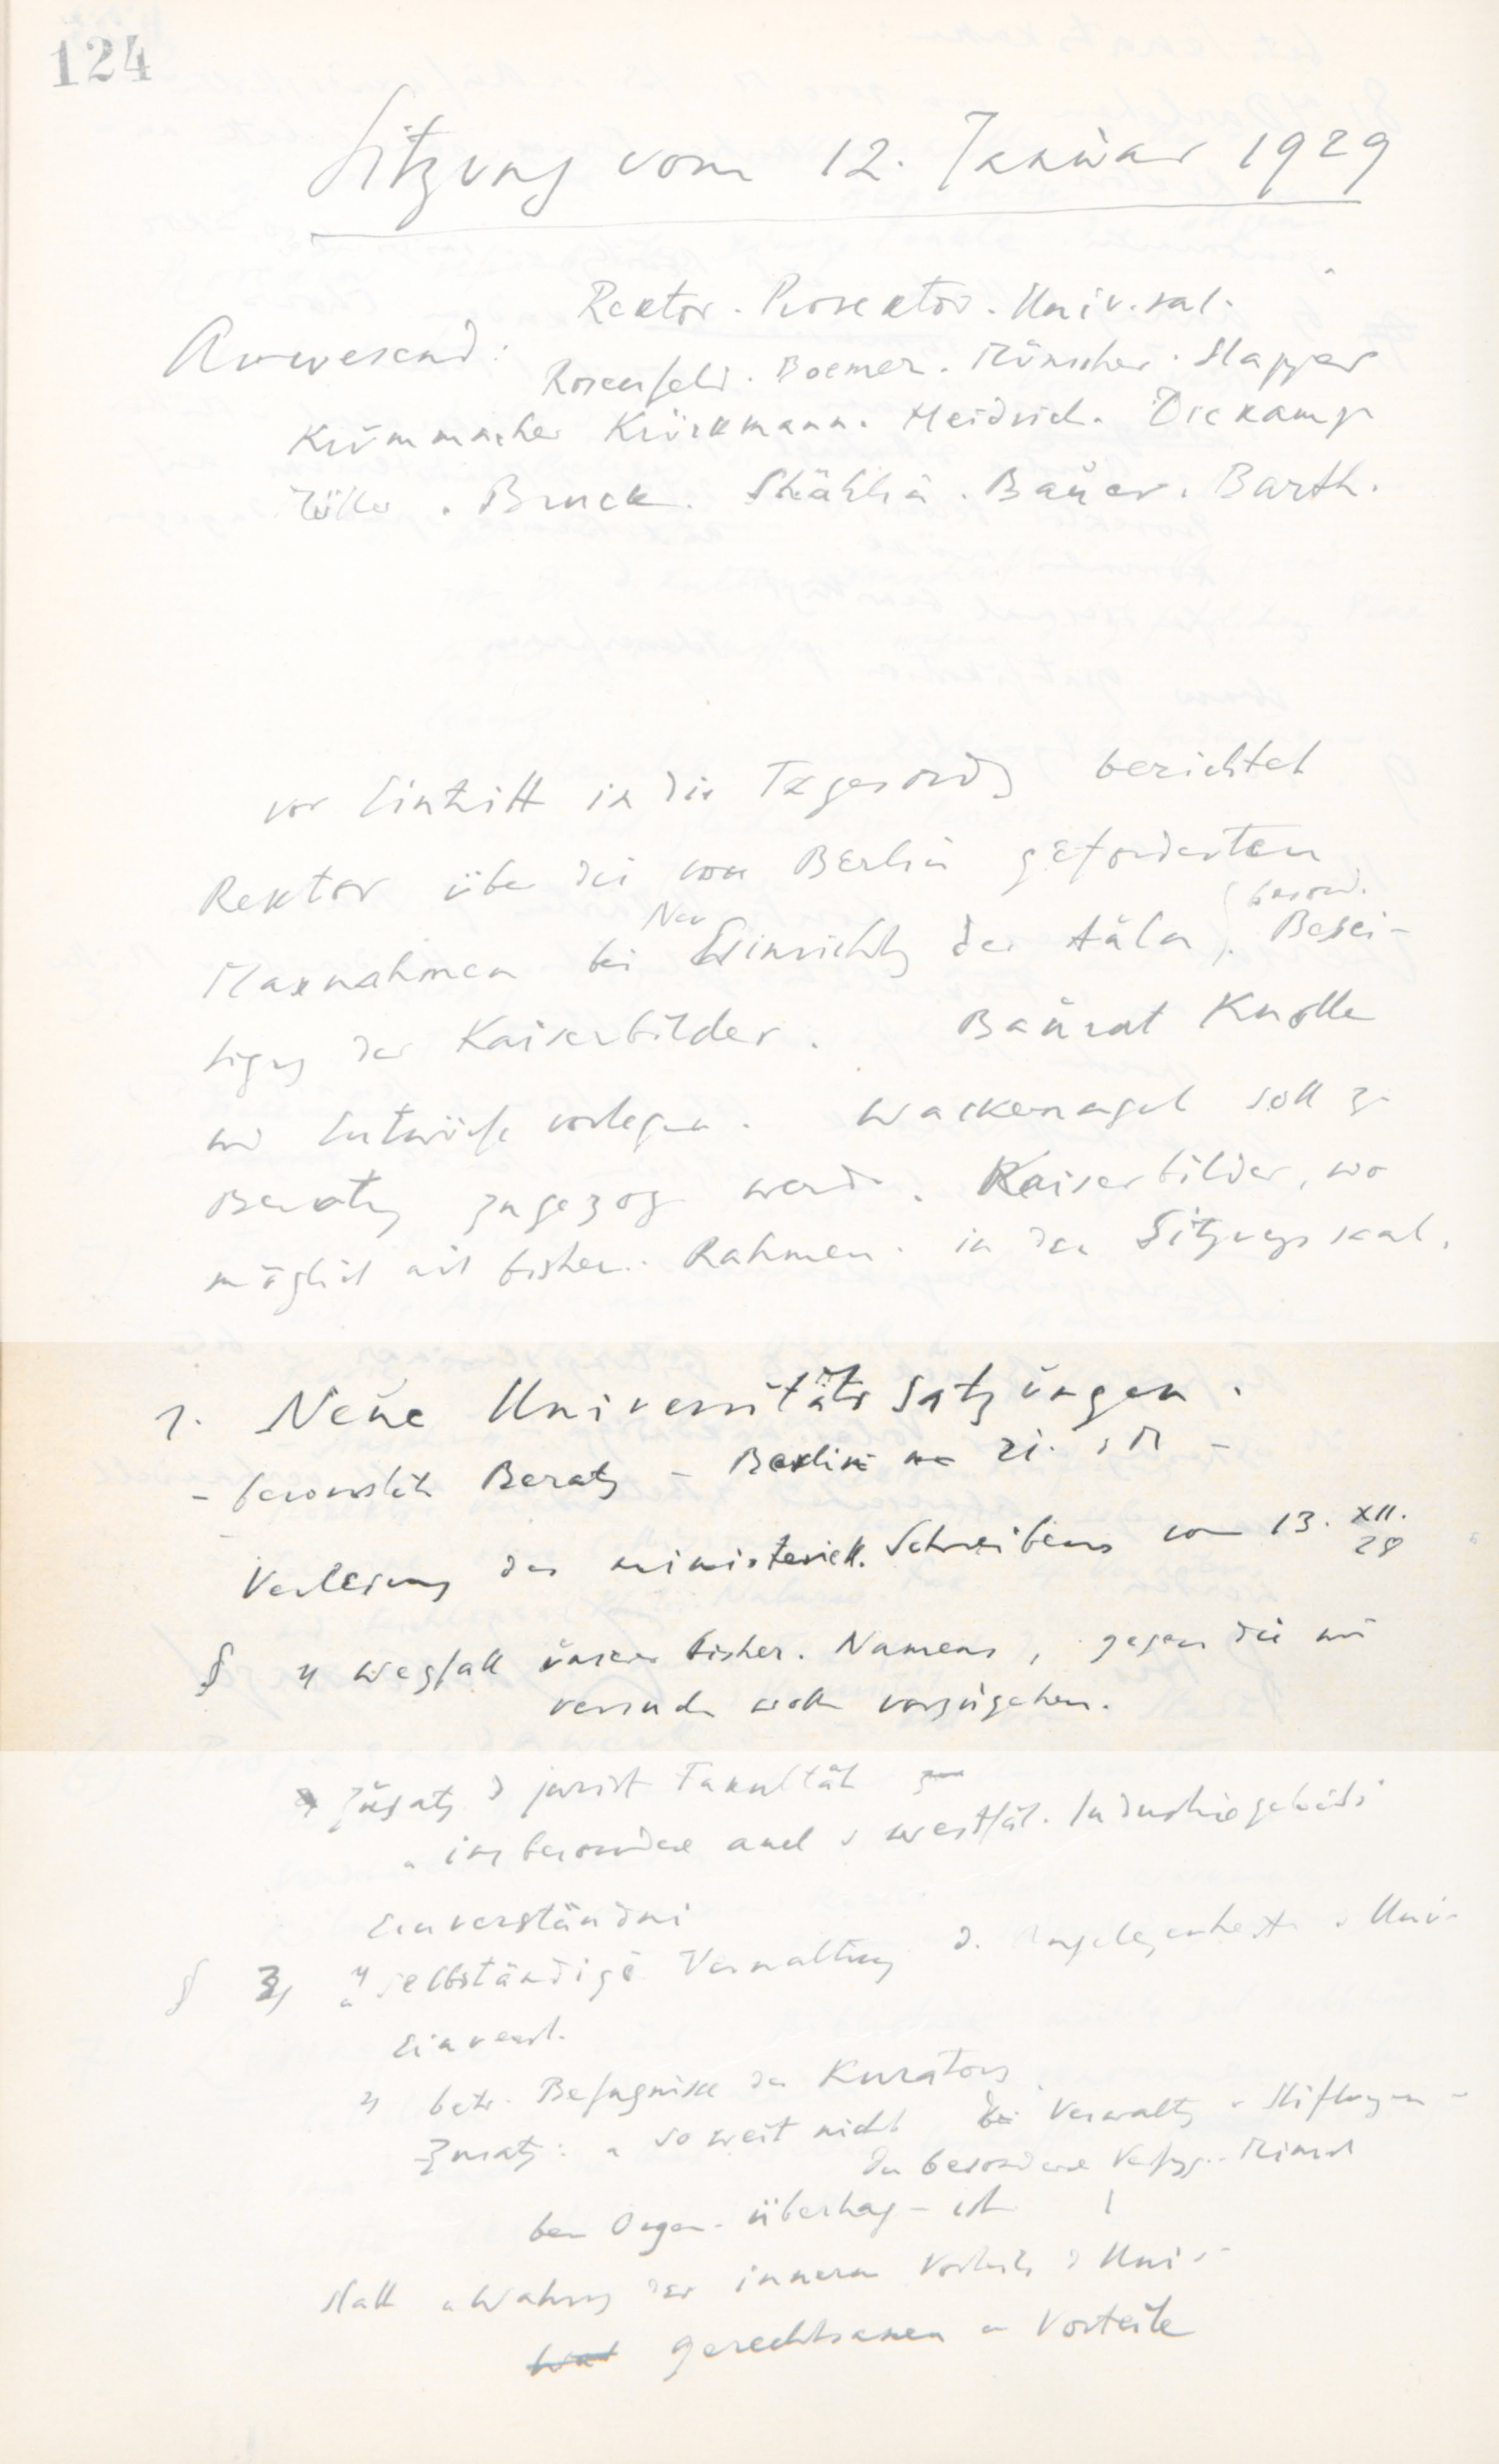 124
Sitzung vom 12. Januar 1929
Rektor. Prorektor. Univ.rat.
Anwesend:
Rosenfeld. Boemer. Münscher. Stapper
Krummacher Krückmann. Heidrich. Diekamp
Bruck. Stählin. Bauer. Barth.
vor Eintritt in die Tagesordg berichtet
Rektor über die von Berlin geforderten
Neu besond.
Massnahmen bei Einrichtg der Aula, Besei-
tigg der Kaiserbilder. Baurat Knolle
wird Entwürfe vorlegen. Wackernagel soll zur
Beratg zugezog werd. Kaiserbilder, wo
möglich mit bisher. Rahmen in den Sitzungssaal.
1. Neue Universitäts Satzungen.
- Beratg - Berlin 21.
Verlesung des ministeriell. Schreibens vom 13. XII. 28
§ 1 Wegfall unseres bisher. Namens, gegen die wir
versuchen wollen vorzugehen.
Zusatz d jurist Fakultät
„ insbesondere auch d westfäl. Industriegebiets
Einverständnis
§ 3, 1) „selbständige Verwaltung d. Angelegenheiten d Univ-
Einverst.
2) betr. Befugnisse des Kurators
Zusatz: „ soweit nicht Verwaltg v Stiftungen
besondere
ben Organ. übertrag- ist
statt „Wahrung der innern Vorteile d Univ-
Gerechtsamen u Vorteile